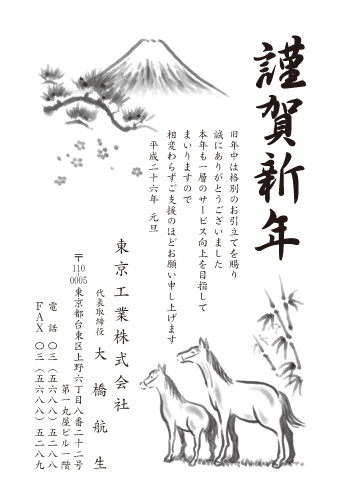 謹賀新年
旧年中は格別のお引立てを賜り
誠にありがとうございました
本年も一層のサービス向上を目指して
まいりますので
相変わらずご支援のほどお願い申し上げます
平成二十六年　元旦
東京工業株式会社
代表取締役　大橋航生
〒110-0005　東京都台東区上野六丁目八番二十二号
第一丸屋ビル一階
電話　〇三（五六八八）五二八八
ＦＡＸ　〇三（五六八八）五二八九